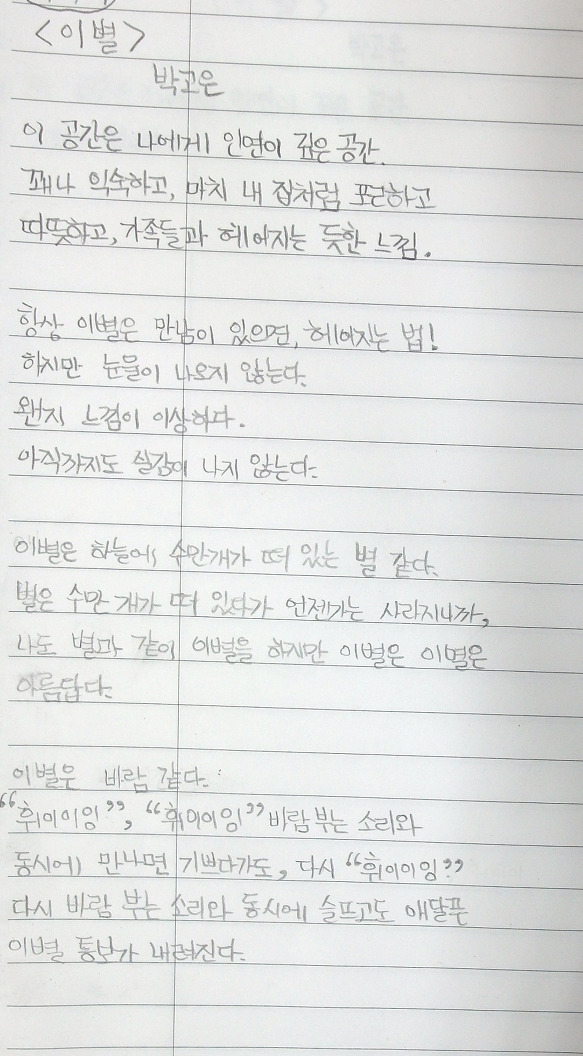 <이별>
박고은
이 공간은 나에게 인연이 깊은 공간.
꽤나 익숙하고, 마치 내 집처럼 포근하고
따뜻하고, 가족들과 헤어지는 듯한 느낌.
항상 이별은 만남이 있으면, 헤어지는 법!
하지만 눈물이 나오지 않는다.
왠지 느낌이 이상하다.
아직까지도 실감이 나지 않는다.
이별은 하늘에 수만개가 떠 있는 별 같다.
별은 수만 개가 떠 있다가 언젠가는 사라지니까,
나도 별과 같이 이별을 하지만 이별은 이별은
아름답다.
이별은 바람 같다.
"휘이이잉", "휘이이잉" 바람 부는 소리와
동시에 만나면 기쁘다가도, 다시 "휘이이잉"
다시 바람 부는 소리와 동시에 슬프고도 애달픈
이별 통보가 내려진다.